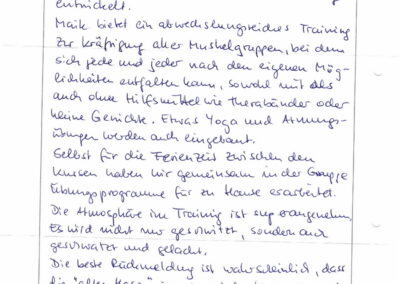 entwickelt.
Maik bietet ein abwechslungsreiches Training
zur Kräftigung aller Muskelgruppen, bei dem
sich jede und jeder nach den eigenen Mög-
lichkeiten entfalten kann, sowohl mit als
auch ohne Hilfsmittel wie Therabänder oder
kleine Gewichte. Etwas Yoga und Atmungs-
übungen werden auch eingebaut.
Selbst für die Ferienzeit zwischen den
Kursen haben wir gemeinsam in der Gruppe
Übungsprogramme für zu Hause erarbeitet.
Die Atmosphäre im Training ist super angenehm.
Es wird nicht nur geschwitzt, sondern auch
geschwatzt und gelacht.
Die beste Rückmeldung ist wahrscheinlich, dass
die "alten